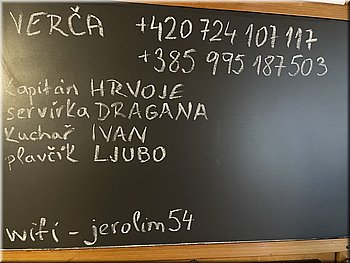 VERČA +420 724 107 117
+385 995 187 503
Kapitán HRVOJE
servírka DRAGANA
Kuchař IVAN
plavčík LJUBO
wifi - jerolim54